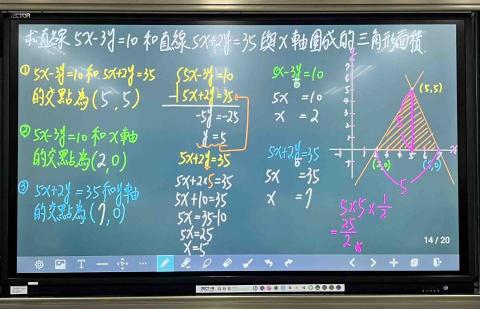 求直線 5x-3y=10 和直線 5x+2y=35 與 x 軸圍成的三角形面積.
① 5x-3y=10 和 5x+2y=35
的交點為(5,5)
② 5x-3y=10 和 x 軸
的交點為(2,0)
③ 5x+2y=35 和y軸
的交點為(7,0)
5x-3y=10
-) 5x+2y=35
-5y=-25
y=5
5x+2y=35
5x+2×5=35
5x+10=35
5x=35-10
5x=25
x=5
5x-3y=10
0
5x =10
x =2
5x+2y=35
0
5x =35
x =7
(5,5)
(2,0)
(7,0)
5
5×5×1/2
=25/2
14 / 20